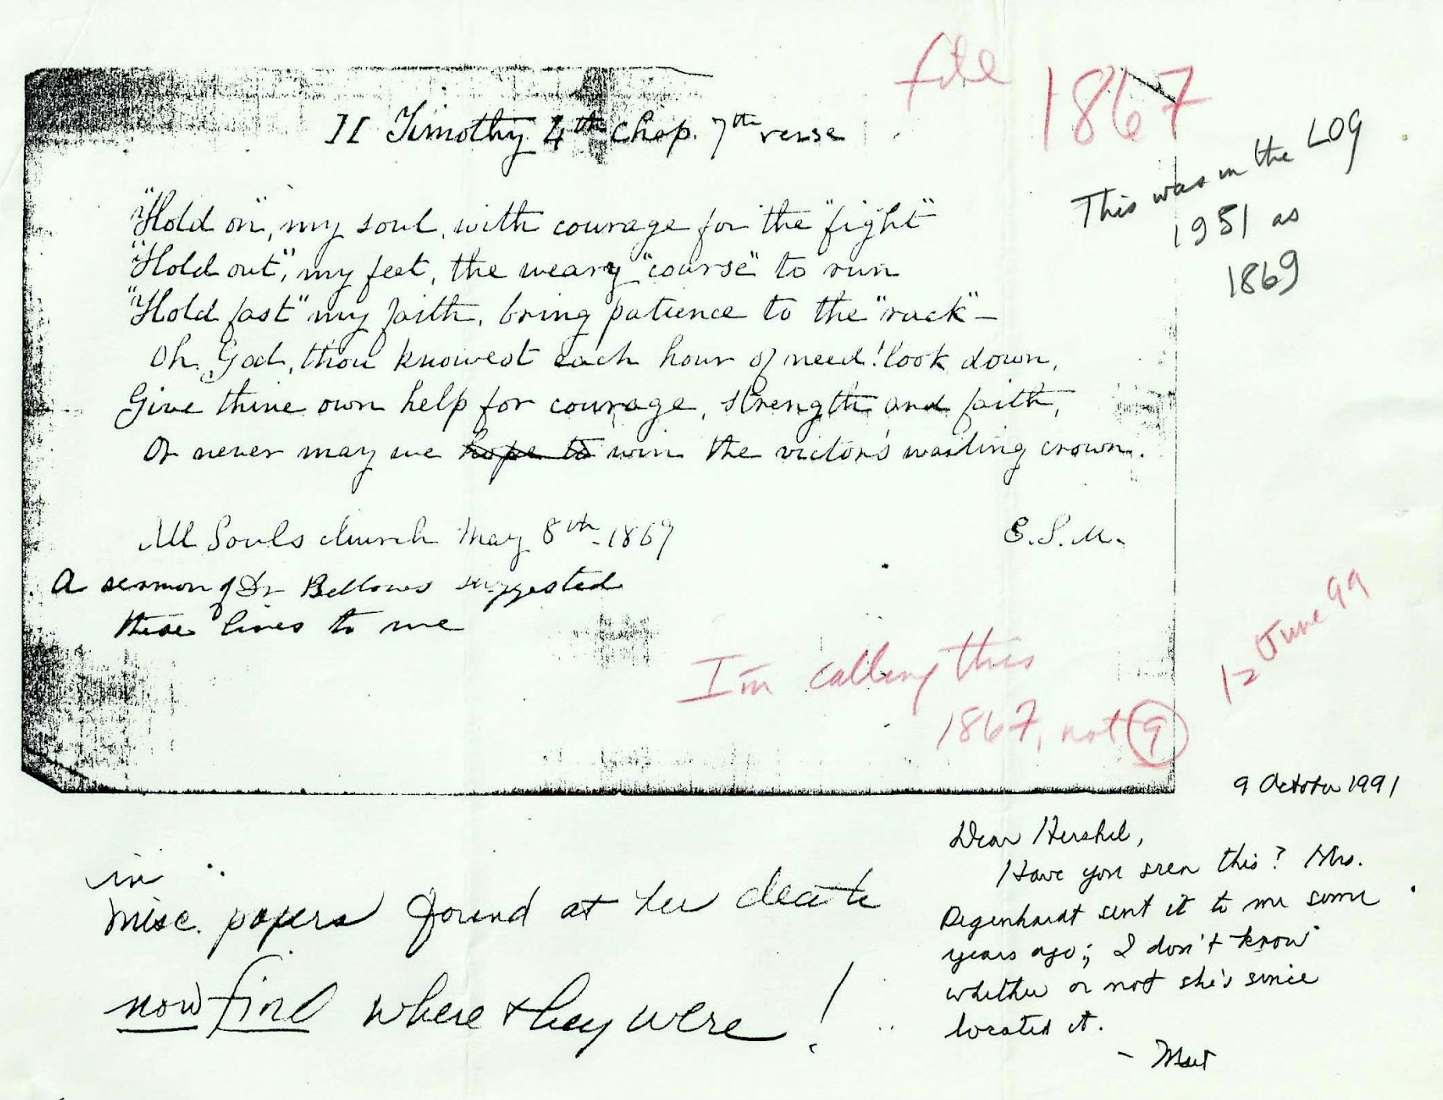 file 1867
This was in the LOG
1951 as
1869
II Timothy 4th Chap. 7th verse
"Hold on", my soul, with courage for the "fight"
"Hold out", my feet, the weary "course" to run
"Hold fast" my faith, bring patience to the "rack" –
Oh, God, thou knowest each hour of need! look down,
Give thine own help for courage, strength and faith,
Or never may we hope to win the victor's waiting crown.
All Souls church May 8th - 1867
E.S.M.
A sermon of Dr Bellows suggested
these lines to me
I'm calling this
1867, not 9
12 June 99
9 October 1991
Dear Hershel,
Have you seen this? Mrs.
Degenhardt sent it to me some
years ago; I don't know
whether or not she's since
located it.
–
in
misc. papers found at her death
now find where they were!